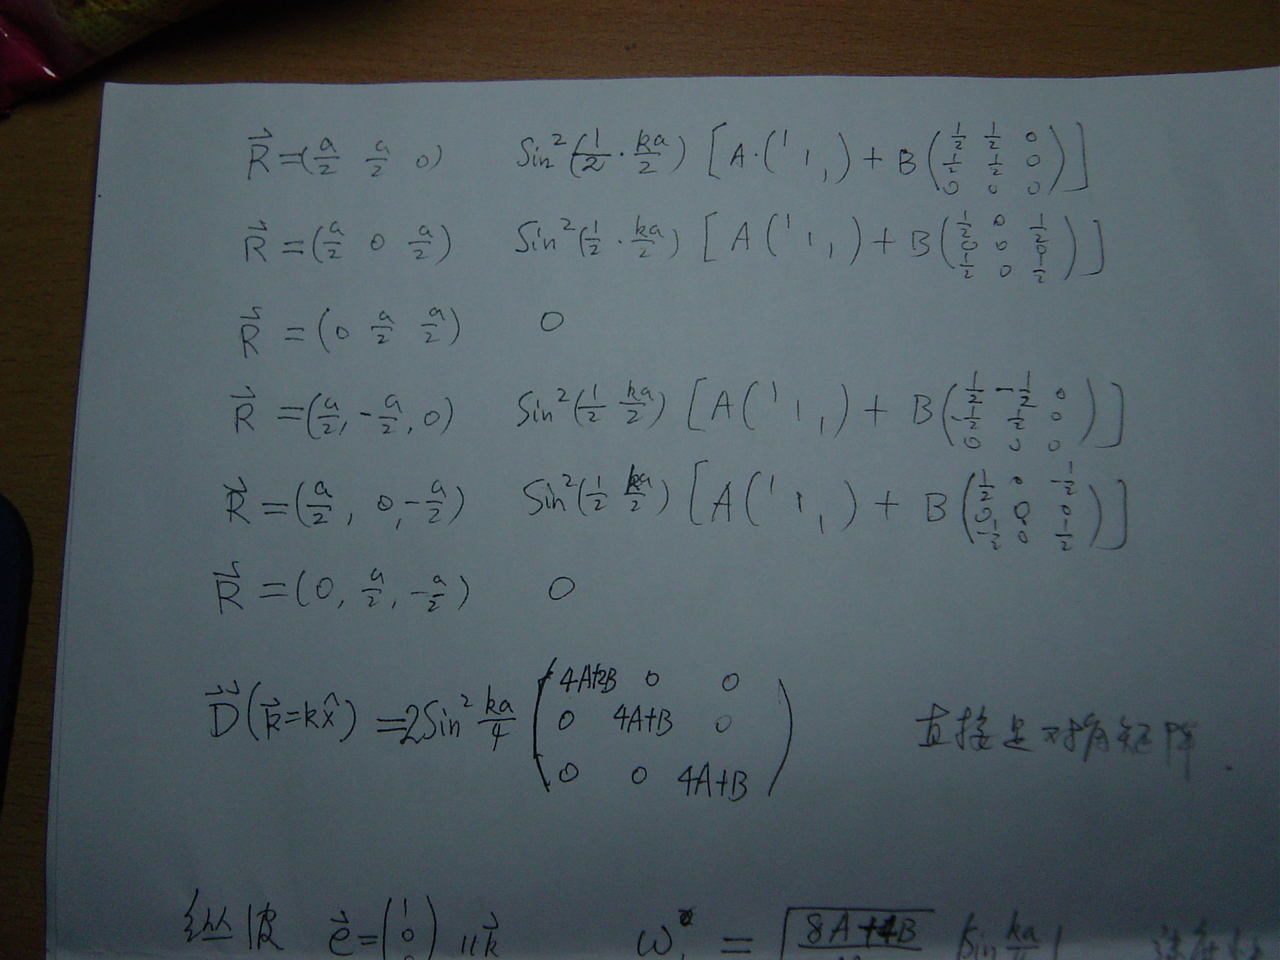 R⃗ = (a/2 a/2 0) Sin²(1/2 · ka/2) [A·(1 1 1) + B(1/2 1/2 0; 1/2 1/2 0; 0 0 0)]
R⃗ = (a/2 0 a/2) Sin²(1/2 · ka/2) [A(1 1 1) + B(1/2 0 1/2; 0 0 0; 1/2 0 1/2)]
R⃗ = (0 a/2 a/2) 0
R⃗ = (a/2, -a/2, 0) Sin²(1/2 ka/2) [A(1 1 1) + B(1/2 -1/2 0; -1/2 1/2 0; 0 0 0)]
R⃗ = (a/2, 0, -a/2) Sin²(1/2 ka/2) [A(1 1 1) + B(1/2 0 -1/2; 0 0 0; -1/2 0 1/2)]
R⃗ = (0, a/2, -a/2) 0
D⃗⃗(k⃗=kx̂) = 2Sin² ka/4 (4A+2B 0 0; 0 4A+B 0; 0 0 4A+B) 直接是对角矩阵.
纵波 e⃗ = (1 0 0) ∥k⃗ ω = √(8A+4B) |Sin ka/4|